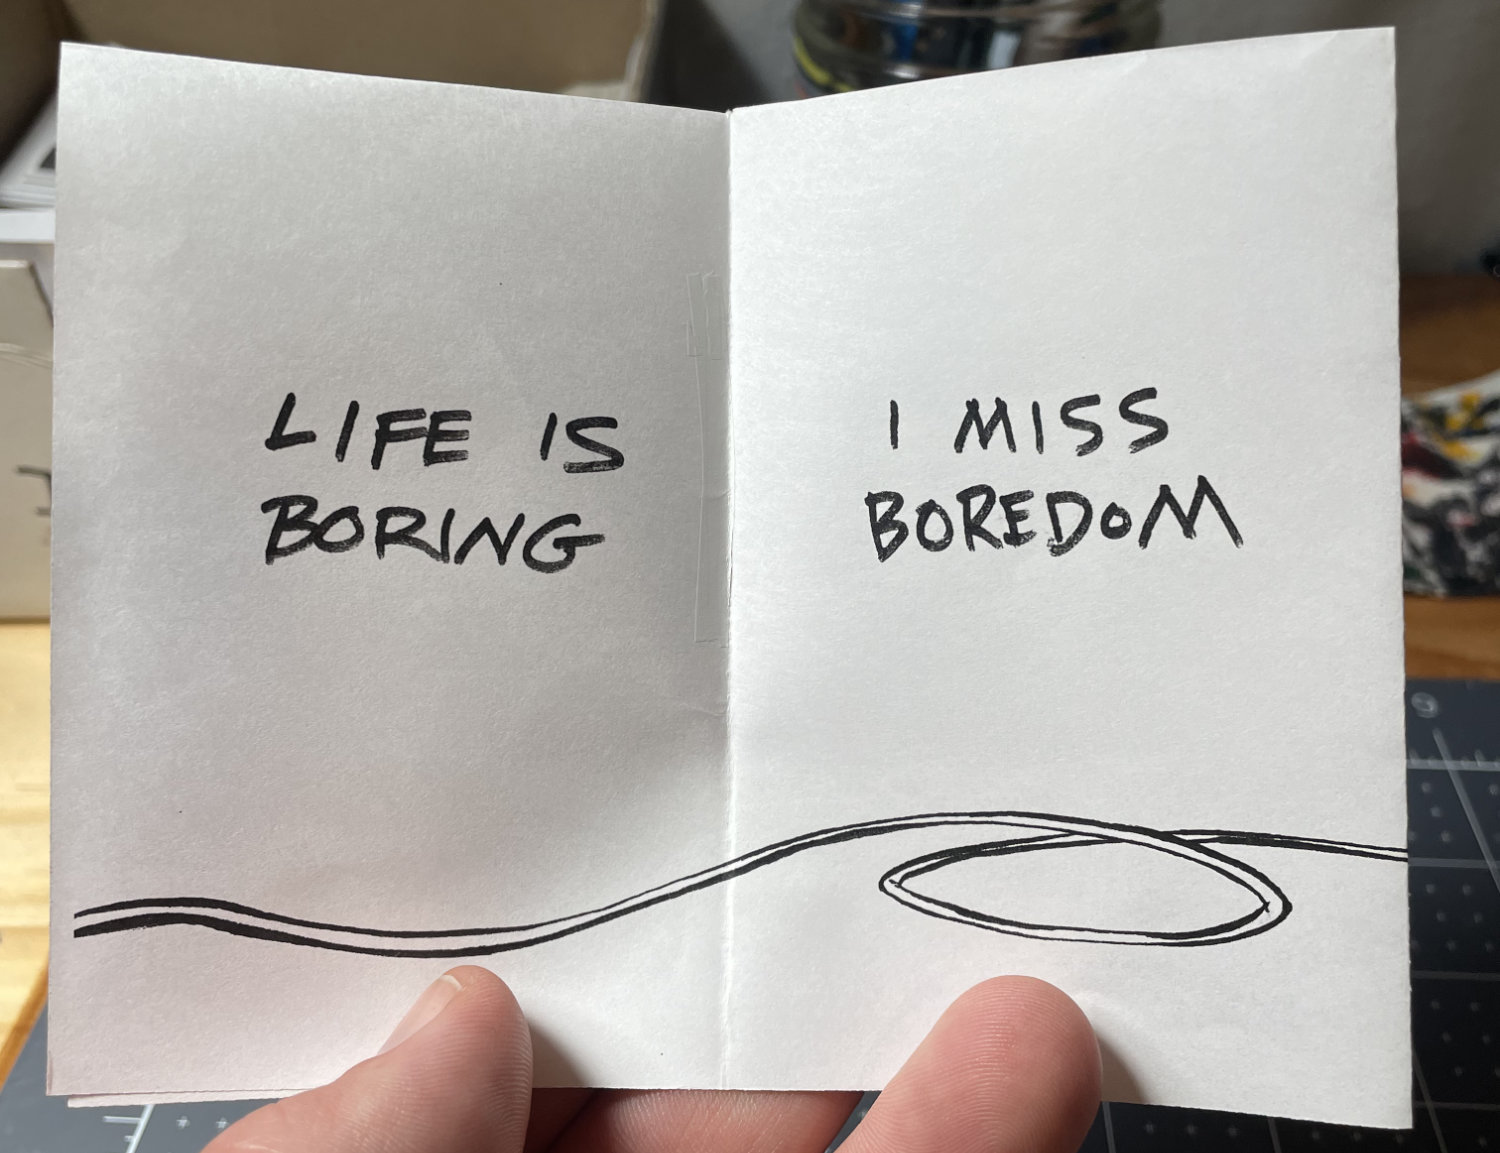 LIFE IS
BORING
I MISS
BOREDOM